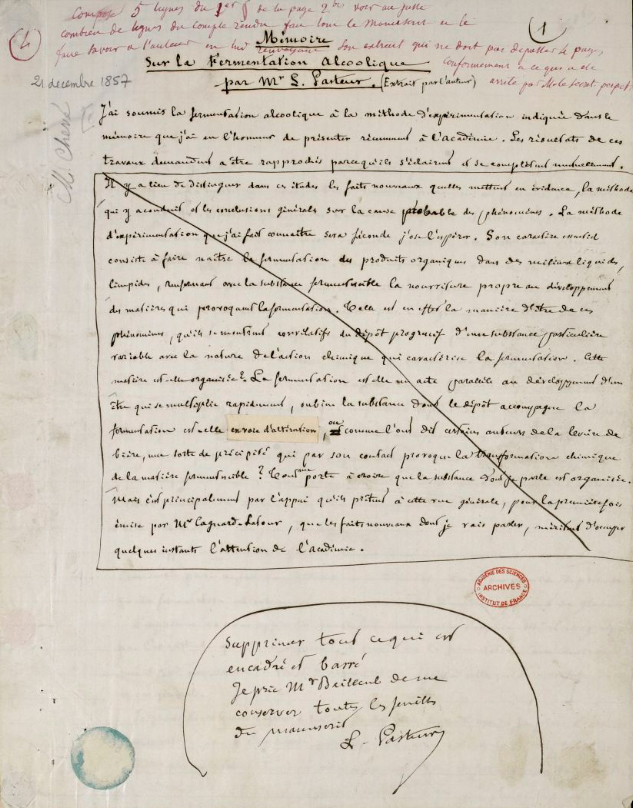 Composer 5 lignes du 1er § de la page 2 voir au juste
combien de lignes du compte rendu fait tout le manuscrit et le
faire savoir à l'auteur en lui renvoyant son extrait qui ne doit pas dépasser 4 pages
conformément à ce qui a été
arrêté par M. le Secrét. perpét.
(4)
(1)
Mémoire
Sur la Fermentation Alcoolique
par Mr L. Pasteur. (Extrait par l'auteur)
21 decembre 1857
J'ai soumis la fermentation alcoolique à la méthode d'expérimentation indiquée dans le
mémoire que j'ai eu l'honneur de présenter récemment à l'académie. Les résultats de ces
travaux demandent à être rapprochés parcequ'ils s'éclairent et se complètent mutuellement.
Il y a lieu de distinguer dans ces études les faits nouveaux qu'elles mettent en évidence, la méthode
qui y a conduit et les conclusions générales sur la cause probable des phénomènes. La méthode
d'expérimentation que j'ai fait connaître sera féconde j'ose l'espérer. Son caractère essentiel
consiste à faire naître la fermentation des produits organiques dans des milieux liquides,
limpides, renfermant avec la substance fermentescible la nourriture propre au développement
des matières qui provoquent la fermentation. Telle est en effet la manière d'être de ces
phénomènes, qu'ils se montrent corrélatifs du dépôt progressif d'une substance particulière
variable avec la nature de l'action chimique qui caractérise la fermentation. Cette
matière est-elle organisée? La fermentation est-elle un acte parallèle au développement d'un
être qui se multiplie rapidement, ou bien la substance dont le dépôt accompagne la
fermentation est-elle en voie d'altération, ou comme l'ont dit certains auteurs de la levûre de
bière, une sorte de précipité qui par son contact provoque la transformation chimique
de la matière fermentescible? Tout me porte à croire que la substance dont je parle est organisée.
Mais c'est principalement par l'appui qu'ils prêtent à cette vue générale, pour la première fois
émise par Mr Cagnard-Latour, que les faits nouveaux dont je vais parler, méritent d'occuper
quelques instants l'attention de l'académie.
ACADÉMIE DES SCIENCES
ARCHIVES
INSTITUT DE FRANCE
Supprimer tout ce qui est
encadré et barré
Je prie Mr Bailleul de me
conserver toutes les feuilles
du manuscrit
L. Pasteur